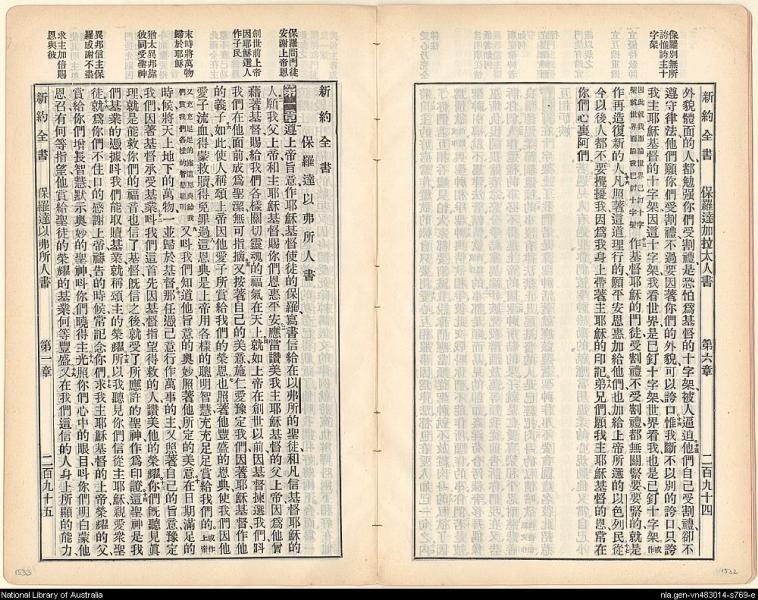 新約全書 保羅達加拉太人書 第六章 二百九十四
保羅別無所
誇惟誇主十
字架
外貌體面的人都勉强你們受割禮是恐怕爲基督的十字架被人逼迫他們自己受割禮卻不
遵守律法他們願你們受割禮不過要因著你們的外貌可以誇口惟我斷不以別的誇口只誇
我主耶穌基督的十字架因這十字架我看世界是已釘十字架世界看我也是已釘十字架
作基督耶穌的門徒受割禮不受割禮都無關緊要要緊的就是
作再造復新的人凡照著這道理行的願平安恩惠加給他們也加給上帝所選的以色列民從
今以後人都不要攪擾我因爲我身上帶著主耶穌的印記弟兄們願我主耶穌基督的恩常在
你們心裏阿們
新約全書
保羅達以弗所人書
保羅問門徒
安謝上帝恩
創世前上帝
因耶穌選人
作子民
末時將萬物
歸於耶穌
猶太異邦論
彼同受聖神
異邦信主保
羅感謝不盡
求主加倍賜
恩與彼
第一章遵上帝旨意作耶穌基督使徒的保羅寫書信給在以弗所的聖徒和凡信基督耶穌的
人願我父上帝和主耶穌基督賜你們恩惠平安應當讚美我主耶穌基督的父上帝因爲他曾
藉著基督賜給我們各樣關切靈魂的福氣在天上就如上帝在創世以前因基督揀選我們叫
我們在他面前成爲聖潔無可指摘又按著自己的美意施仁愛豫定我們因著耶穌基督作他
的義子如此使人稱頌上帝因他愛子所賞給我們的榮恩也照著他豐盛的恩典使我們因他
愛子流血得蒙救贖得免罪過這恩典是上帝用各樣的聰明智慧充充足足賞給我們的
又叫我們知道他旨意的奧妙照著他所定的美意在日期滿足的
時候將天上地下的萬物一並歸於基督那在憑己意行作萬事的主又照著自己的旨意豫定
我們因著基督承受基業叫我們這首先因基督指望得救的人讚美他的榮耀你們既聽見眞
理就是能救你們的福音也信了基督既信之後就受了所應許的聖神作爲印證這聖神是我
們基業的憑據叫我們能取贖基業就稱頌主的榮耀所以我聽見你們信從主耶穌親愛衆聖
徒就爲你們不住口的感謝上帝禱告的時候常記念你們求我主耶穌基督的上帝榮耀的父
賞給你們增長智慧默示奧妙的聖神叫你們曉得主光照你們心中的眼目叫你們明白蒙他
恩召有何等指望他賞給聖徒的榮耀的基業何等豐盛又在我們這信的人身上所顯的能力
新約全書 保羅達以弗所人書 第一章 二百九十五
1533
1532
National Library of Australia
nla.gen-vn483014-s769-e